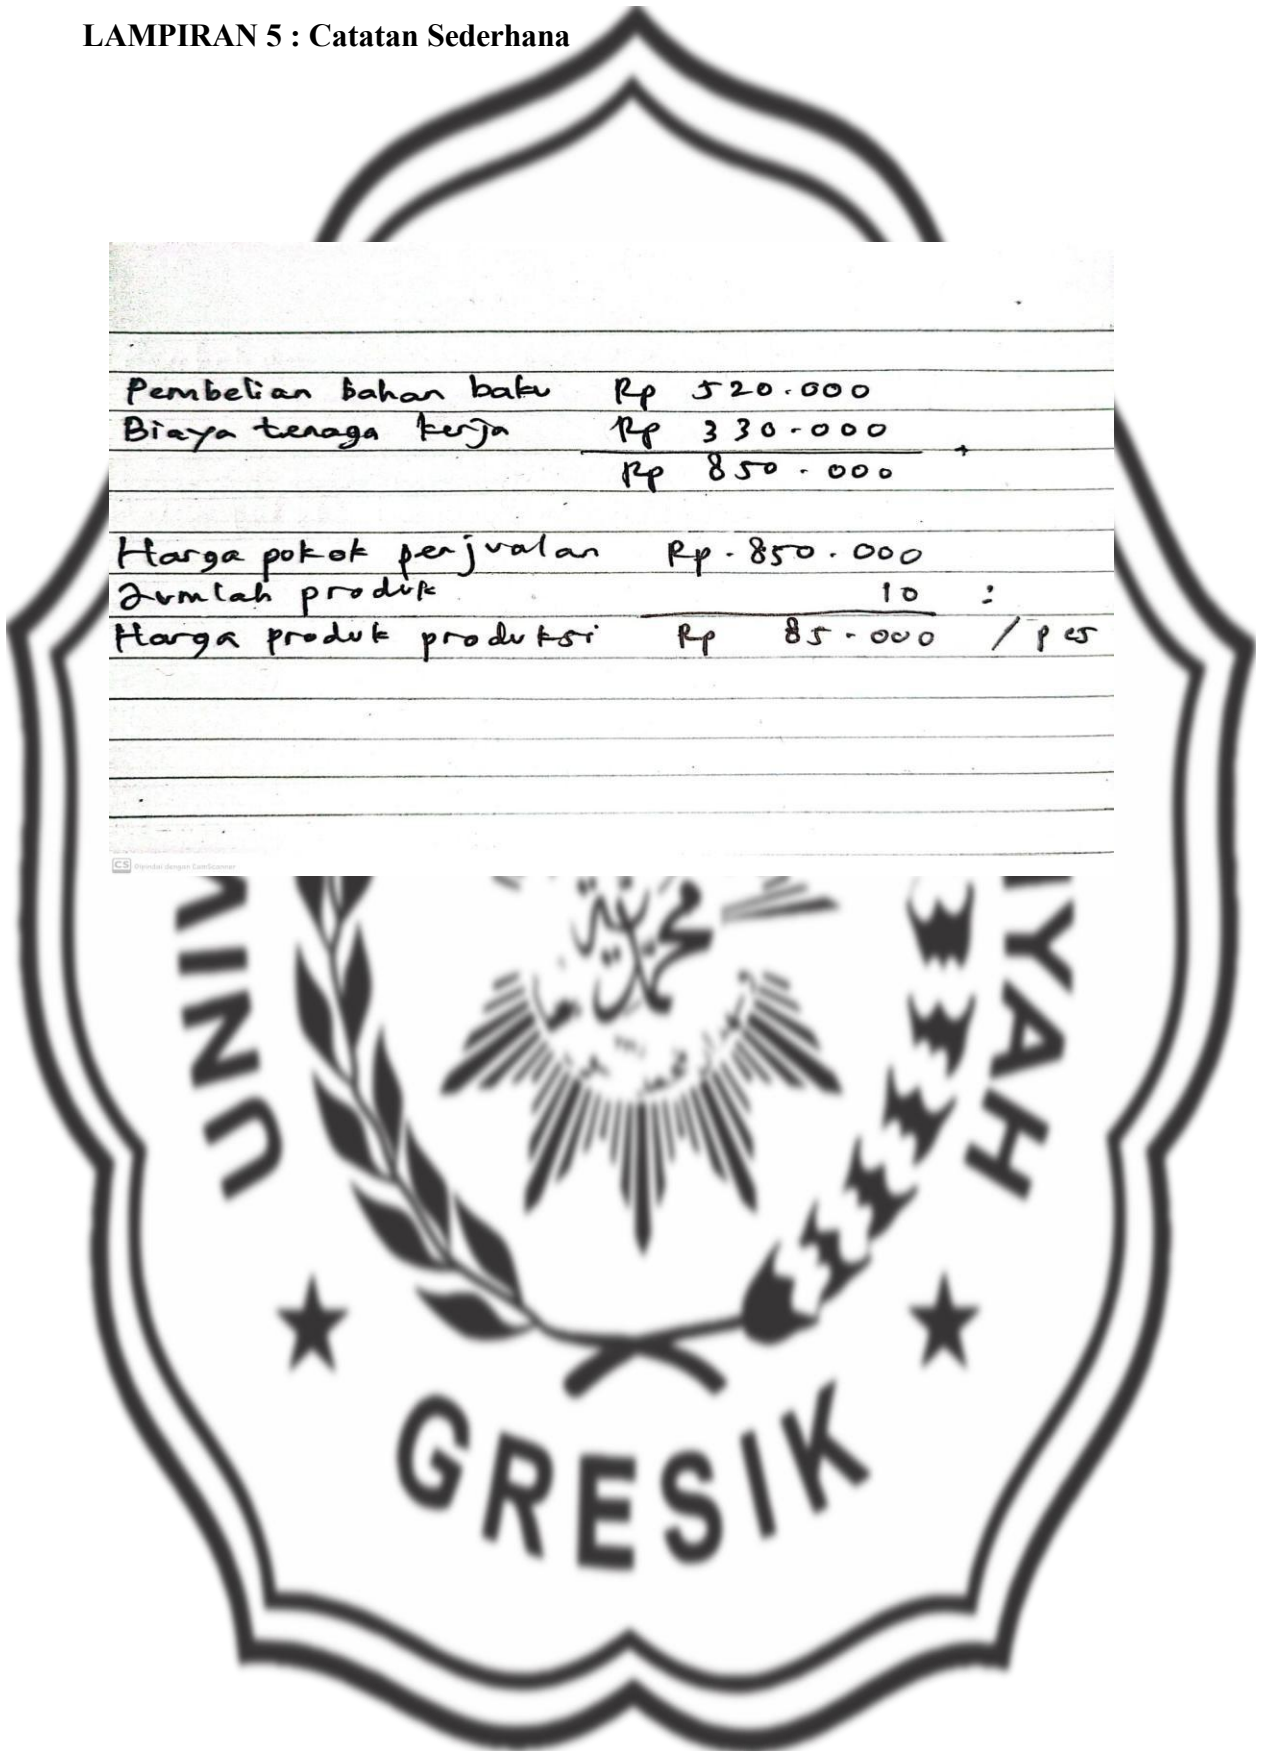 LAMPIRAN 5 : Catatan Sederhana
Pembelian bahan baku Rp 520.000
Biaya tenaga kerja Rp 330.000 +
Rp 850.000
Harga pokok penjualan Rp. 850.000
Jumlah produk 10 :
Harga produk produksi Rp 85.000 / pcs
CS Dipindai dengan CamScanner
UNIV
IYAH
GRESIK